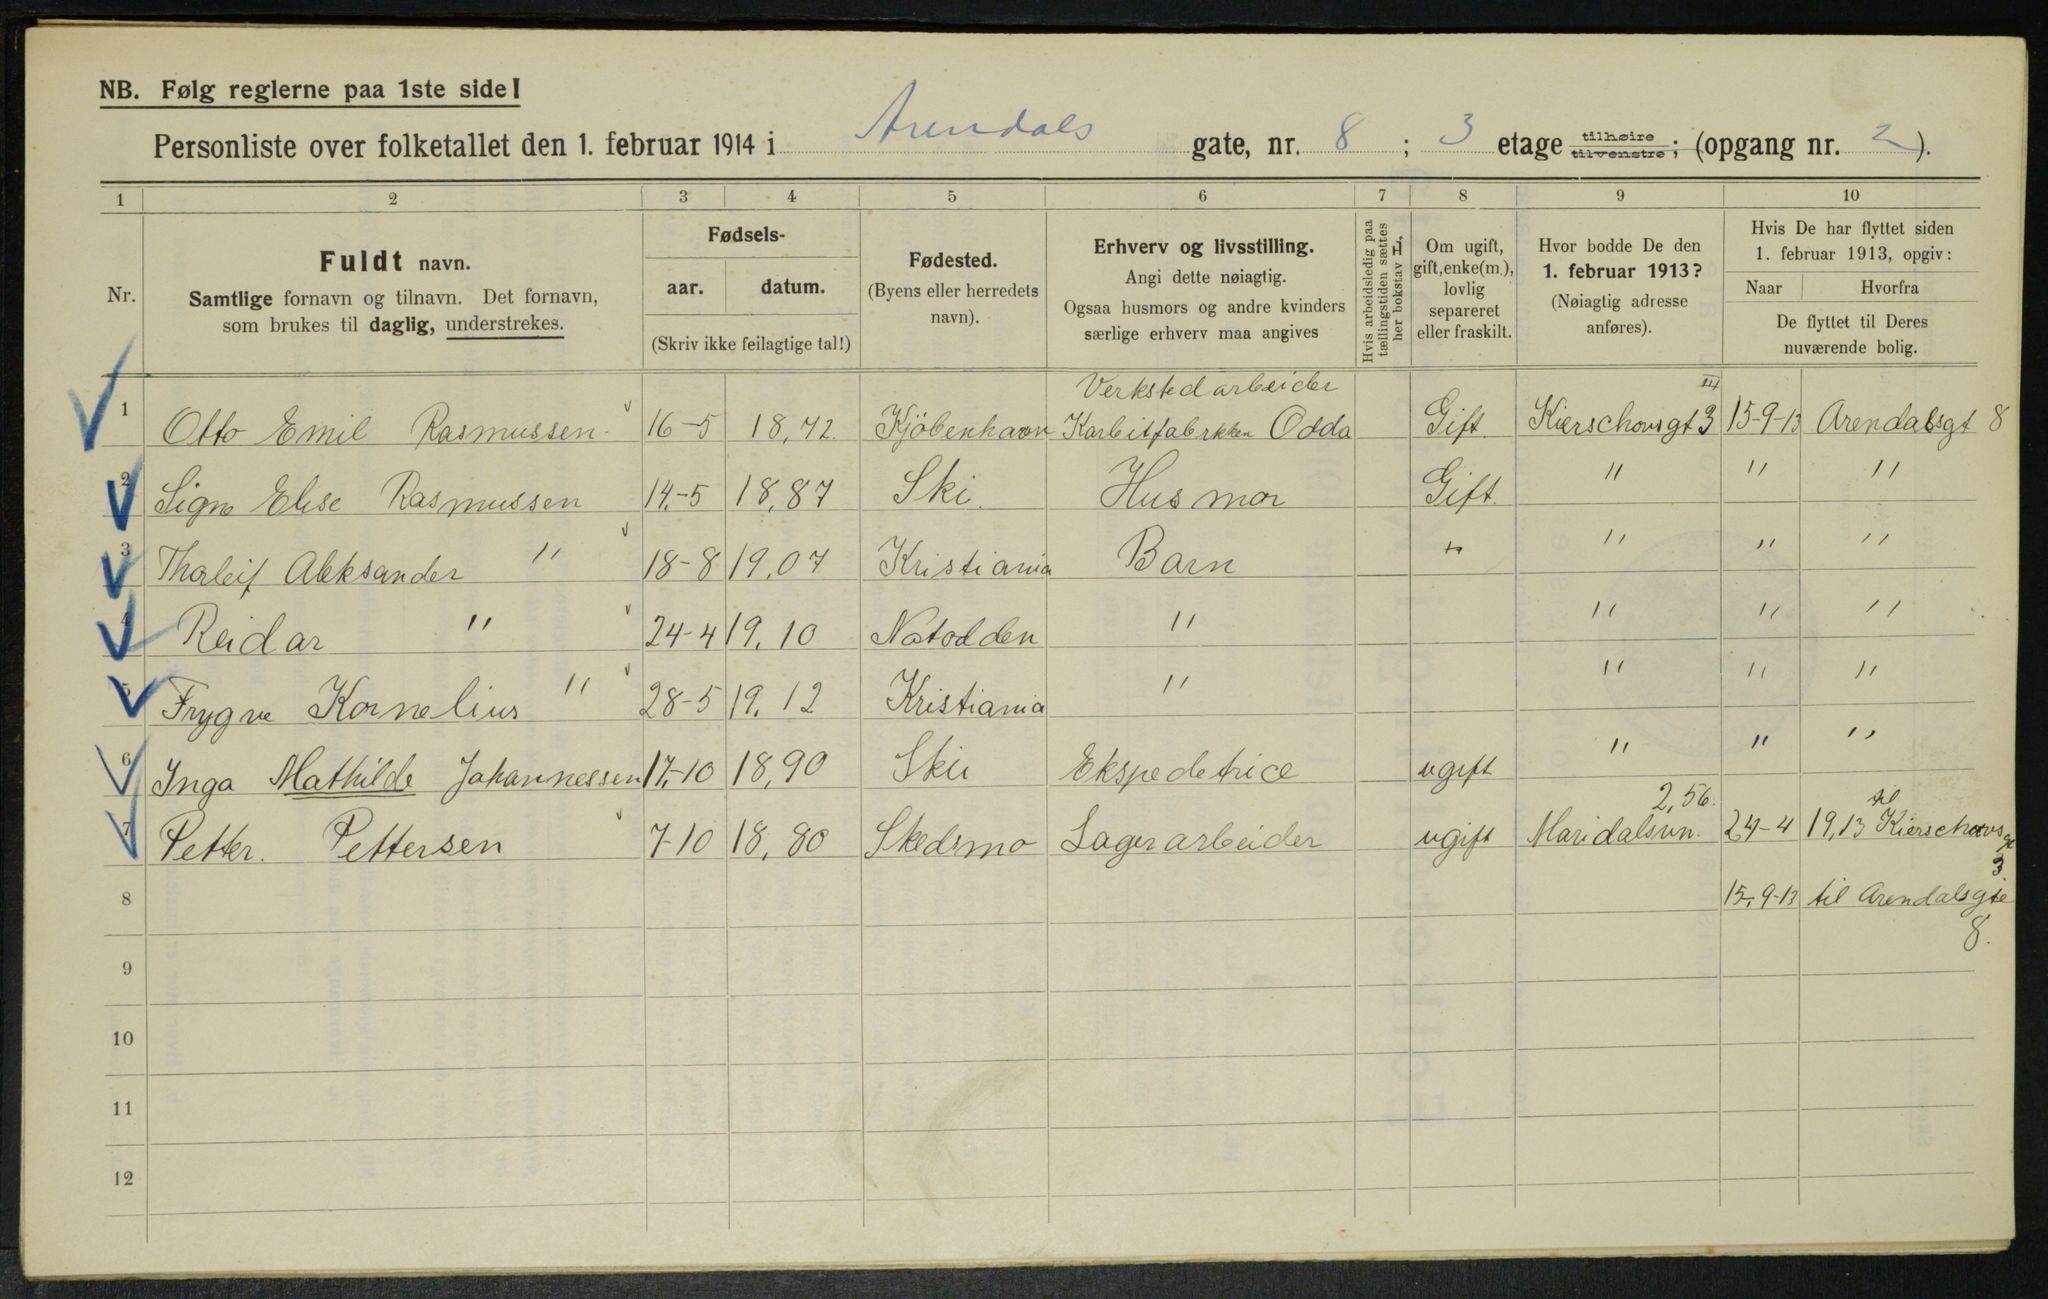 NB. Følg reglerne paa 1ste side!
Personliste over folketallet den 1. februar 1914 i Arendals gate, nr. 8 ; 3 etage tilhøire tilvenstre; (opgang nr. 2).
1 2 3 4 5 6 7 8 9 10
Nr.
Fuldt navn.
Samtlige fornavn og tilnavn. Det fornavn,
som brukes til daglig, understrekes.
Fødsels-
aar. datum.
(Skriv ikke feilagtige tal!)
Fødested.
(Byens eller herredets
navn).
Erhverv og livsstilling.
Angi dette nøiagtig.
Ogsaa husmors og andre kvinders
særlige erhverv maa angives
Hvis arbeidsledig paa
tællingstiden sættes
her bokstav L.
Om ugift,
gift, enke(m.),
lovlig
separeret
eller fraskilt.
Hvor bodde De den
1. februar 1913?
(Nøiagtig adresse
anføres).
Hvis De har flyttet siden
1. februar 1913, opgiv:
Naar Hvorfra
De flyttet til Deres
nuværende bolig.
Verkstedarbeider
1 Otto Emil Rasmussen 16-5 18,72. Kjöbenhavn Karbeitfabrkken Odda Gift. Kierschowsgt 3 15-9-13 Arendalsgt 8
2 Signe Elise Rasmussen 14-5 18,87 Ski. Husmor Gift. " " "
3 Thorleif Aleksander " 18-8 19,07 Kristiania Barn " " " "
4 Reidar " 24-4 19,10 Notodden " " " "
5 Trygve Kornelius " 28-5 19,12 Kristiania " " " "
6 Inga Mathilde Johannessen 17-10 18,90 Ski Ekspedetrice ugift " " "
2,56. til
7 Petter. Pettersen 7-10 18,80 Skedsmo Lagerarbeider ugift Maridalsvn. 24-4 19,13 Kierschowsgt
3.
8 15-9-13 til Arendalsgte
8.
9
10
11
12